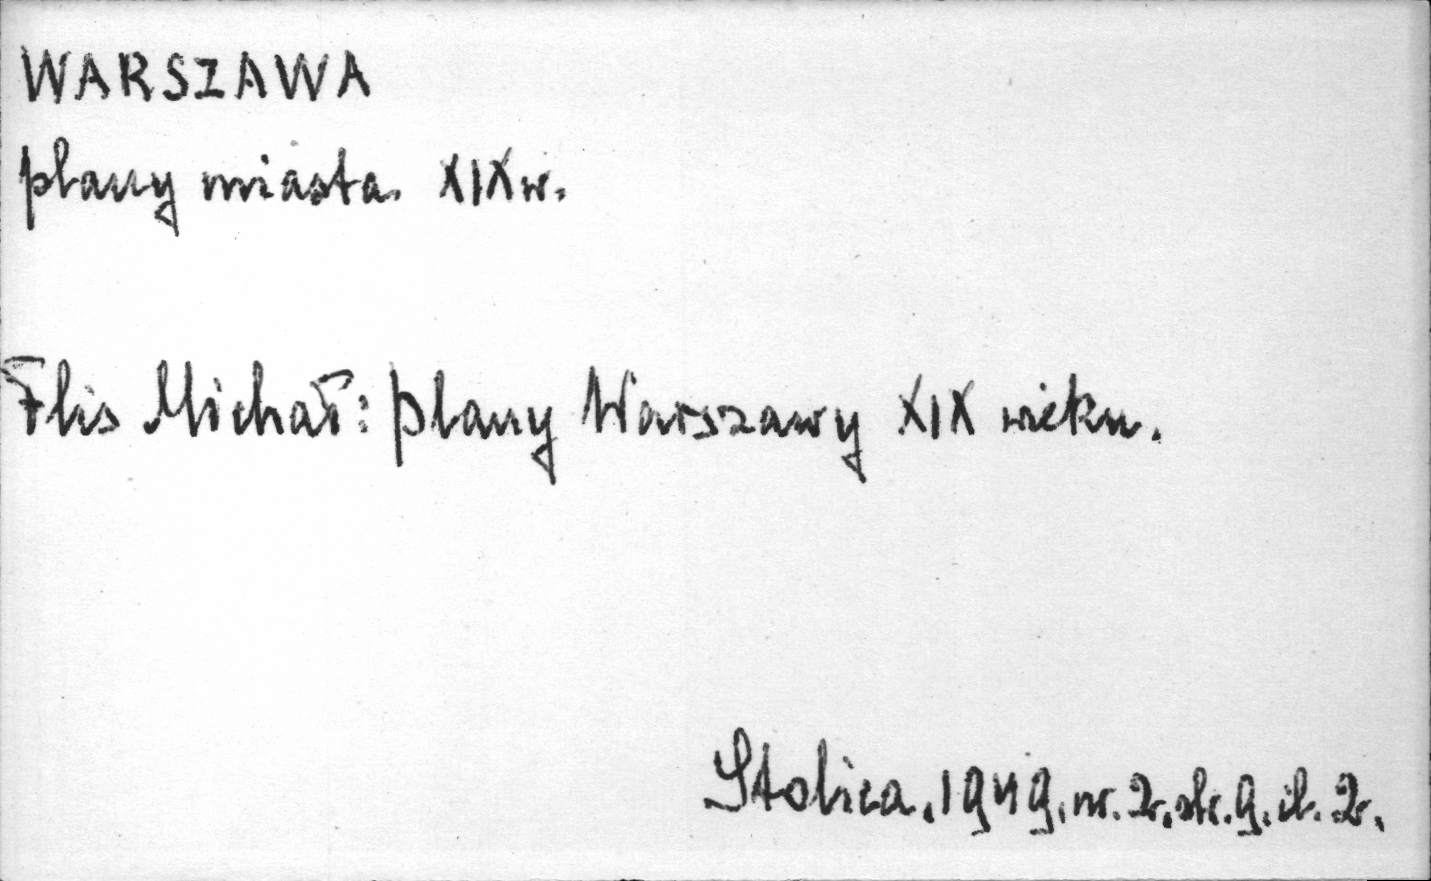 WARSZAWA
plany miasta. XIX w.
Flis Michał: plany Warszawy XIX wieku.
Stolica. 1949. nr. 2. str. 9. il. 2.